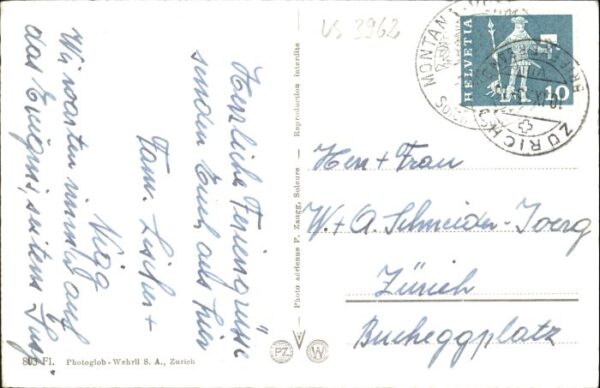 VS 3962
Herzliche Feriengrüsse
senden Euch aus hier
Fam.
Wir warten immer auf
das Ereignis, seitens
Photo aérienne F. Zaugg, Soleure - Reproduction interdite
HELVETIA
10
MONTANA
ZÜRICH
Herr + Frau
W. + A. Schneider-Joerg
Zürich
Bucheggplatz
803 Fl. Photoglob-Wehrli S. A., Zurich
PZ
W